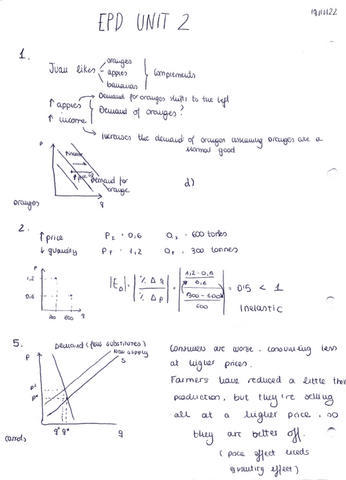 EPD UNIT 2
1.
Juan likes
oranges
apples
bananas
complements
↑ apples
↑ income
Demand for oranges shifts to the left
Demand of oranges?
Increases the demand of oranges assuming oranges are a
normal good
P
Demand for
orange
q
oranges
d)
2.
↑ price
↓ quantity
P₂ = 0,6
Q₂ = 600 tonnes
P₁ = 1,2
Q₁ = 300 tonnes
P
1,2
0,6
600
q
|E_D| = | % Δ q / % Δ p | =
1,2 - 0,6
0,6
300 - 600
600
= 0.5 < 1
Inelastic
5.
Demand (few substitutes)
New supply
S
P
q
Consumers are worse, consuming less
at higher prices.
Farmers have reduced a little their
production, but they're selling
all at a higher price, so
they are better off.
(price effect exceeds
quantity effect)